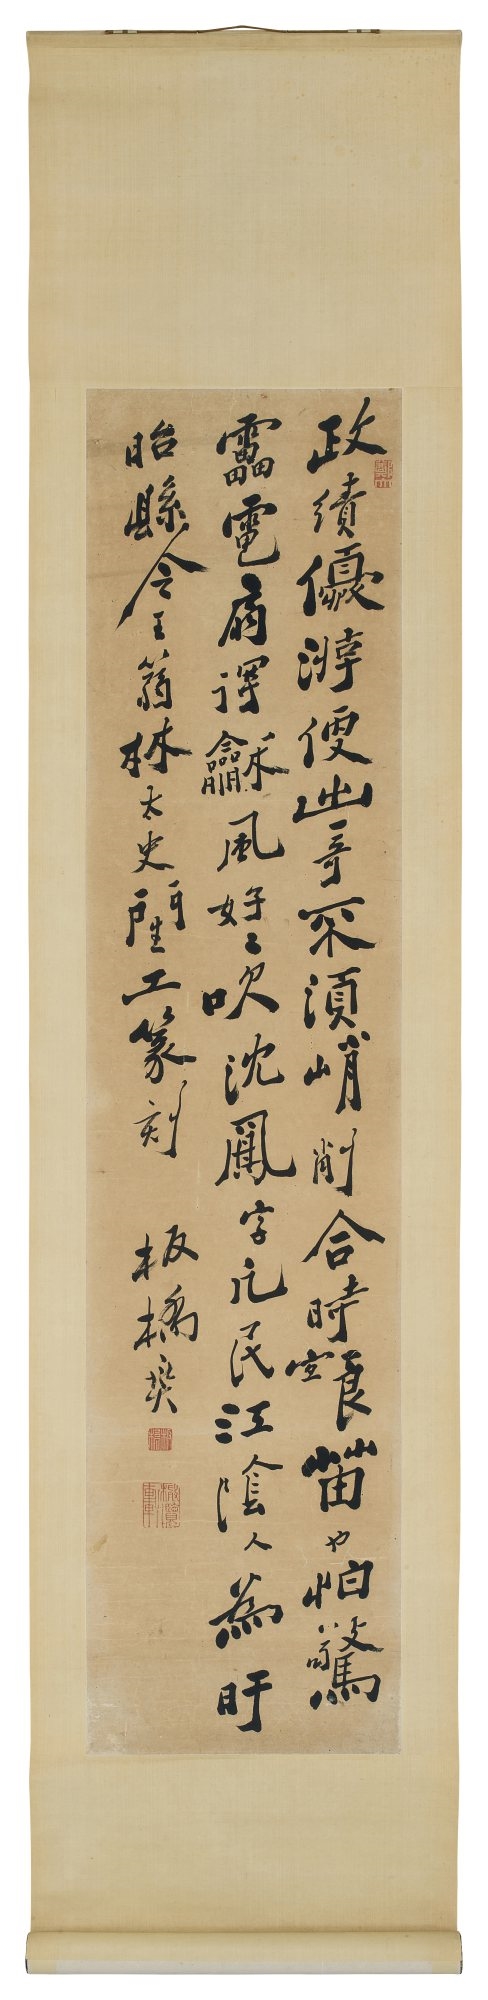 政績優游便出奇不須峭削合時宜良苗也怕驚
雷電扇得龢風好〻吹沈鳳字凡民江陰人為盱
眙縣令王篛林太史門生工篆刻
板橋燮